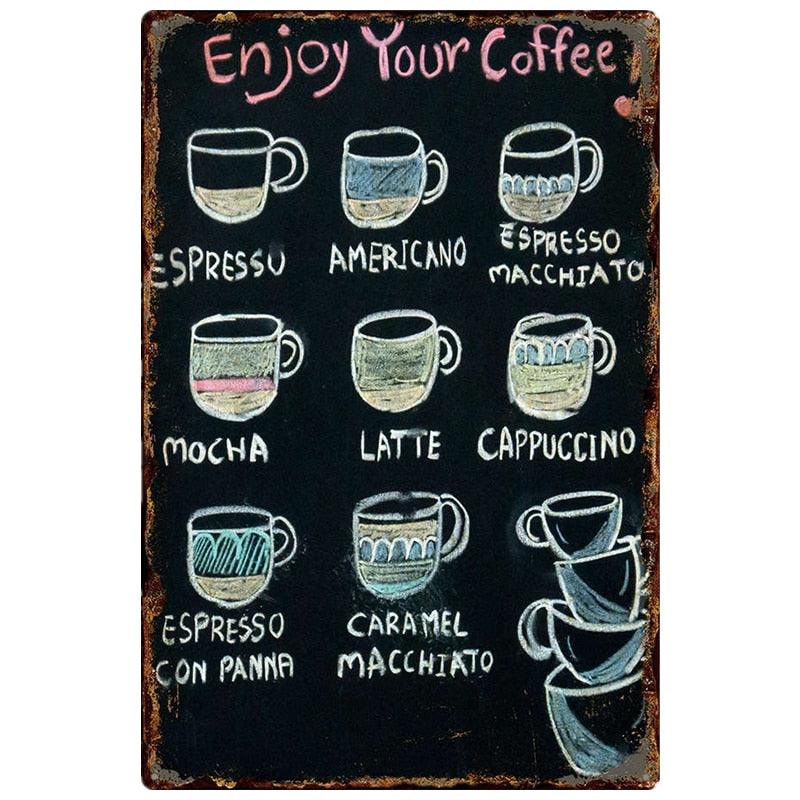 Enjoy Your Coffee!
ESPRESSO
AMERICANO
ESPRESSO
MACCHIATO
MOCHA
LATTE
CAPPUCCINO
ESPRESSO
CON PANNA
CARAMEL
MACCHIATO